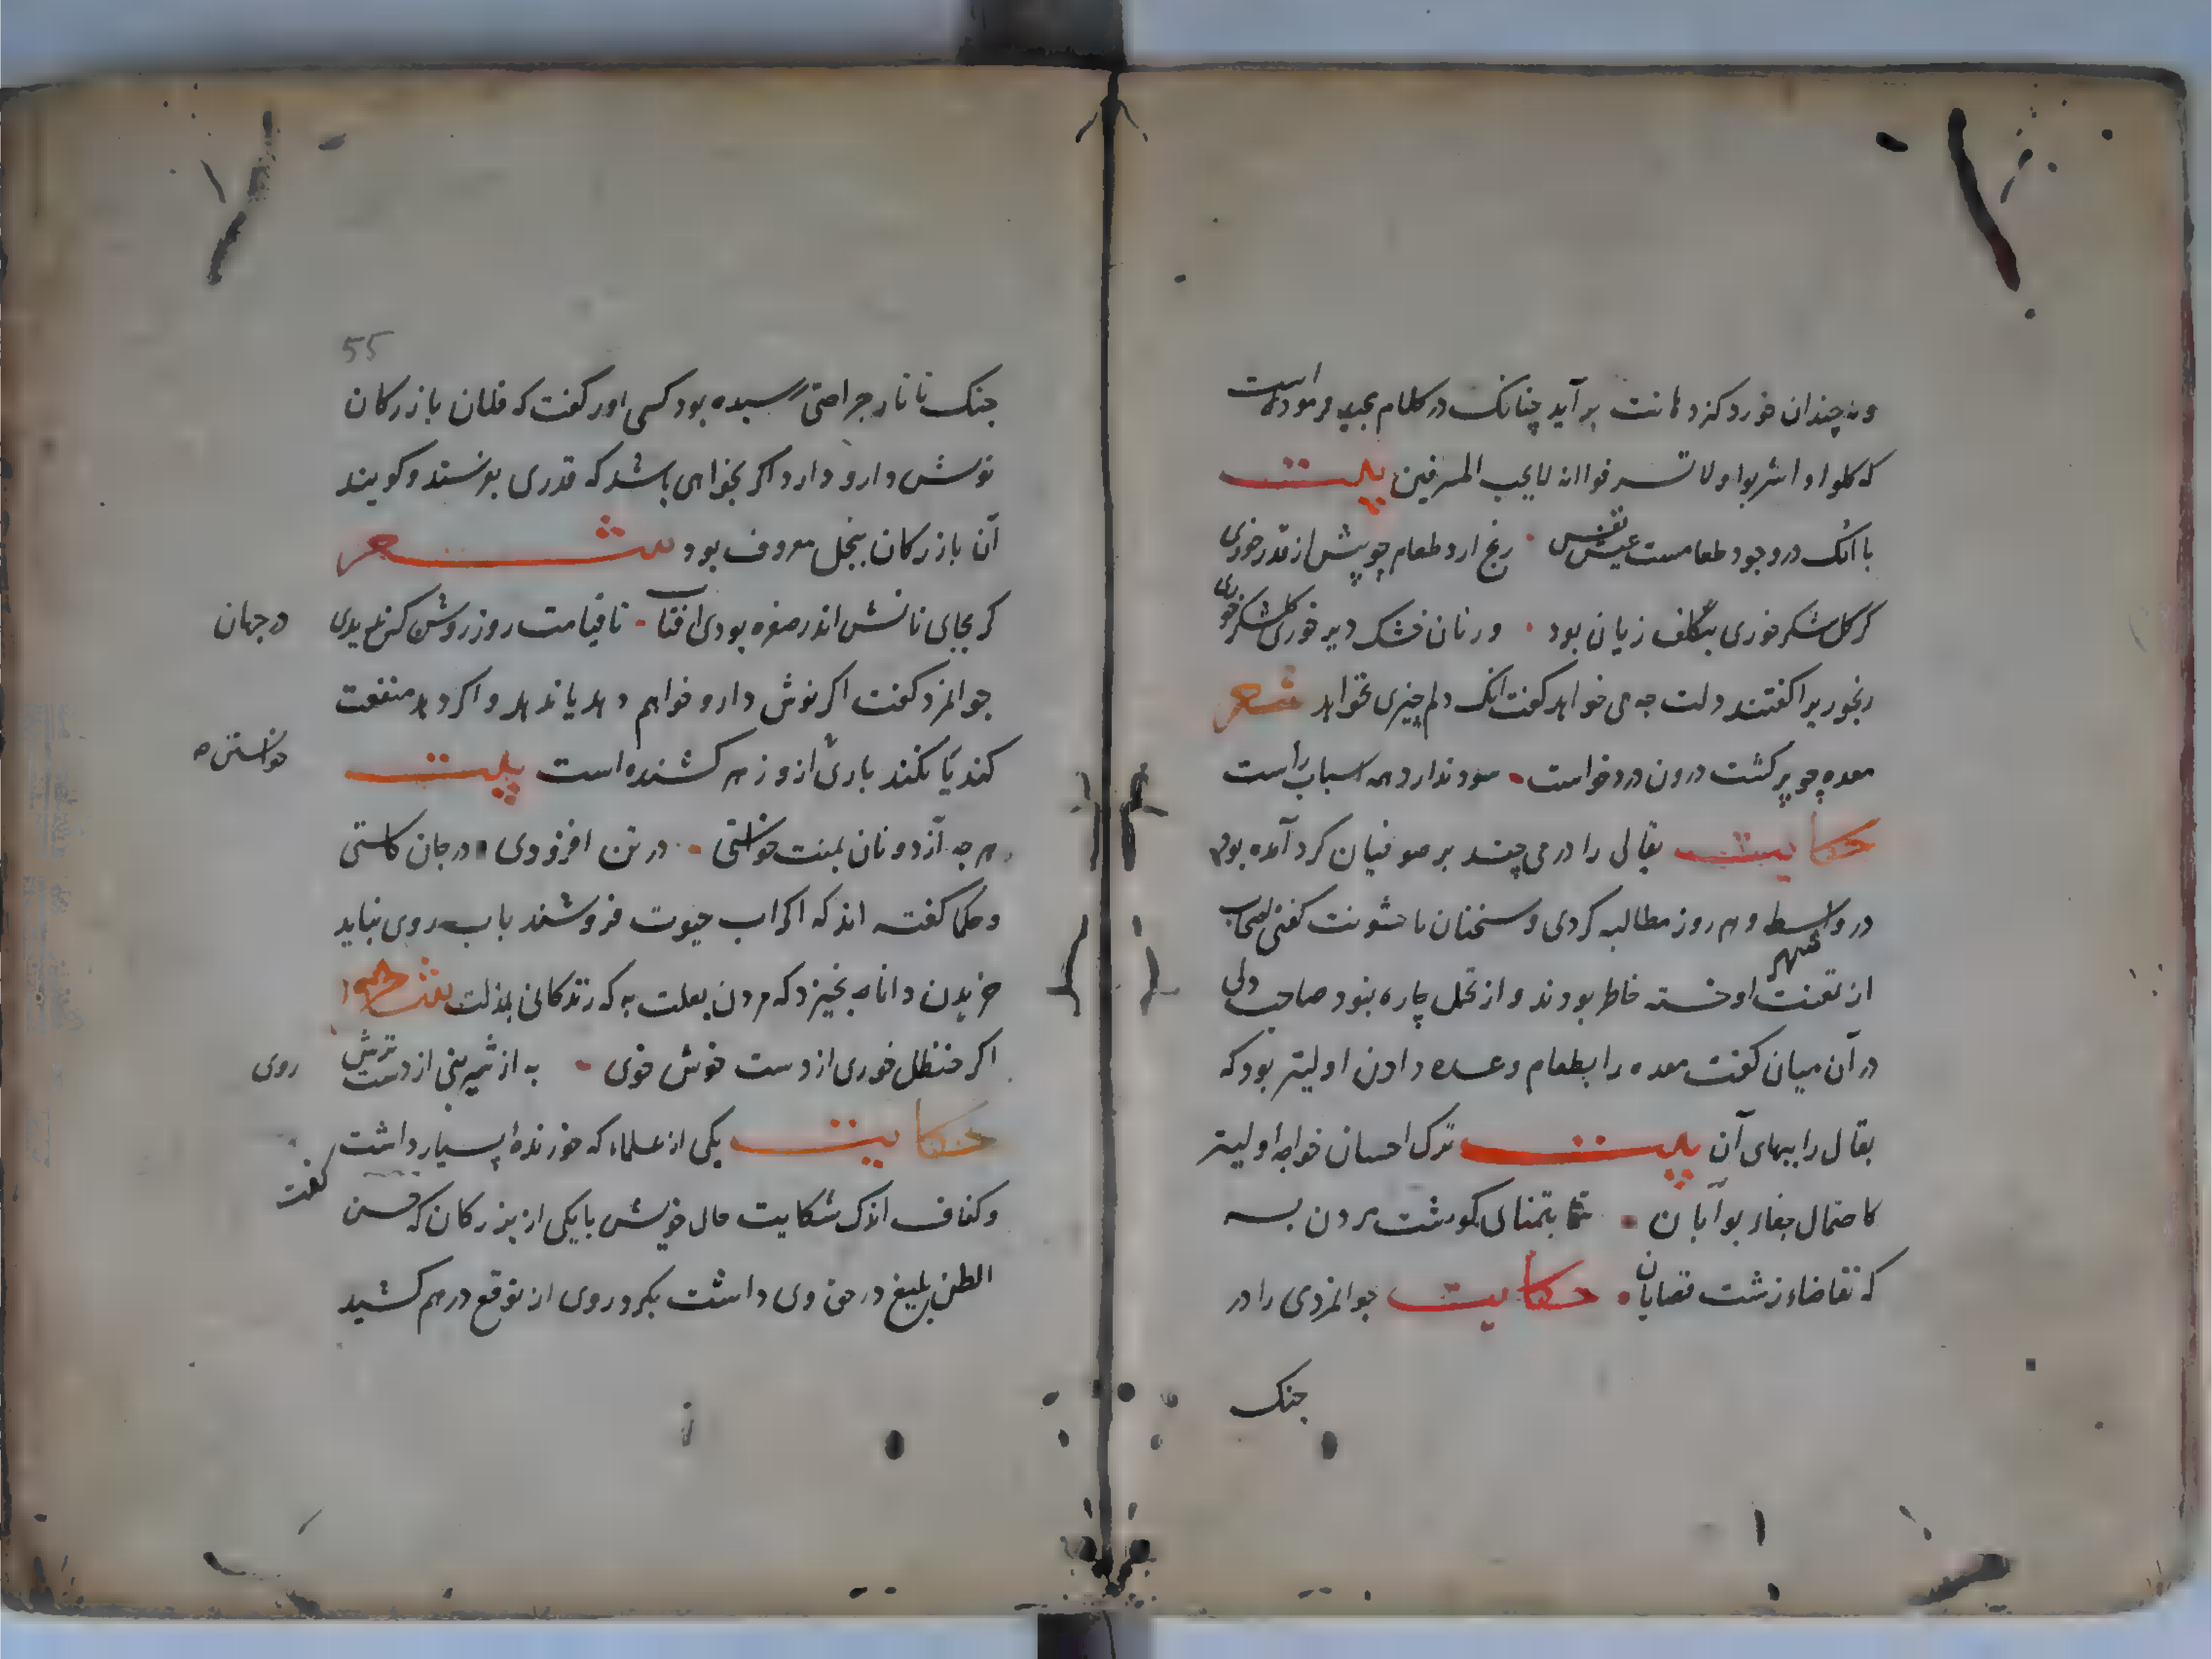 ونه چندان خورد کزدهانت برآید چنانک در کلام مجید فرموده است
که کلوا واشربوا ولا تسرفوا انه لایحب المسرفین بیت
با انک در وجود طعامست عیش نفس رنج ارد طعام چو بیش از قدر خوری
کر کل شکر خوری بتکلف زیان بود ور نان خشک دیر خوری کل شکر خوری
رنجور یرا کفتند دلت چه می خواهد کفت انک دلم چیزی نخواهد شعر
معده چو پر کشت درون درد خواست سود ندارد همه اسباب راست
حکایت بقالی را درمی چند بر صوفیان کرد آمده بود
در واسط و هر روز مطالبه کردی و سخنان با خشونت کفتی اصحاب
از تعنت او خسته خاطر بودند و از تحمل چاره نبود صاحب دلی
در آن میان کفت معده را بطعام وعده دادن اولیتر بود که
بقال را ببهای آن بیت ترک احسان خواجه اولیتر
کاحتمال جفاء بوابان بتمنای کوشت مردن به
که تقاضاء زشت قصابان حکایت جوانمردی را در
جنک
55
جنک تاتار جراحتی رسیده بود کسی اورا کفت که فلان بازرکان
نوش دارو دارد اکر بخواهی باشد که قدری بفرستد و کویند
آن بازرکان ببخل معروف بود شعر
کر بجای نانش اندر سفره بودی افتاب تا قیامت روز روشن کس ندیدی
در جهان
جوانمرد کفت اکر نوش دارو خواهم دهد یا ندهد و اکر دهد منفعت
کند یا نکند باری ازو زهر کشنده است بیت
خواستن
هر چه از دونان بمنت خواستی در تن افزودی و در جان کاستی
و حکما کفته اند که اکر اب حیوت فروشند باب روی نباید
خریدن دانا نه بخیزد که مردن بعلت به که زندکانی بمذلت
اکر حنظل خوری از دست خوش خوی به از شیرینی از دست ترش
روی
حکایت یکی از علماء که خورندهٔ بسیار داشت
کفت
و کفاف اندک شکایت حال خویش با یکی از بزرکان که حسن
الظن بلیغ در حق وی داشت بکرد روی از توقع درهم کشید